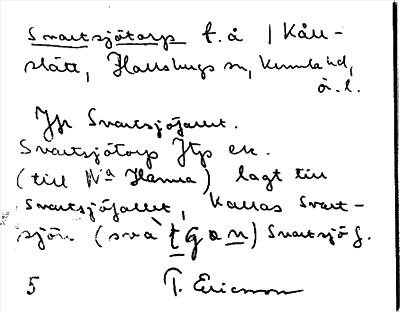 Svartsjötorp f.å | Kårr-
slätt, Hallsbergs sn, Kumla hd,
ö.l.
Jfr Svartsjöfallet.
Svartsjötorp Jtp ek.
(till Na Hamra) lagt till
Svartsjöfallet, kallas Svart-
sjön (svàtgan) Svartsjö f.
5 T. Ericsson